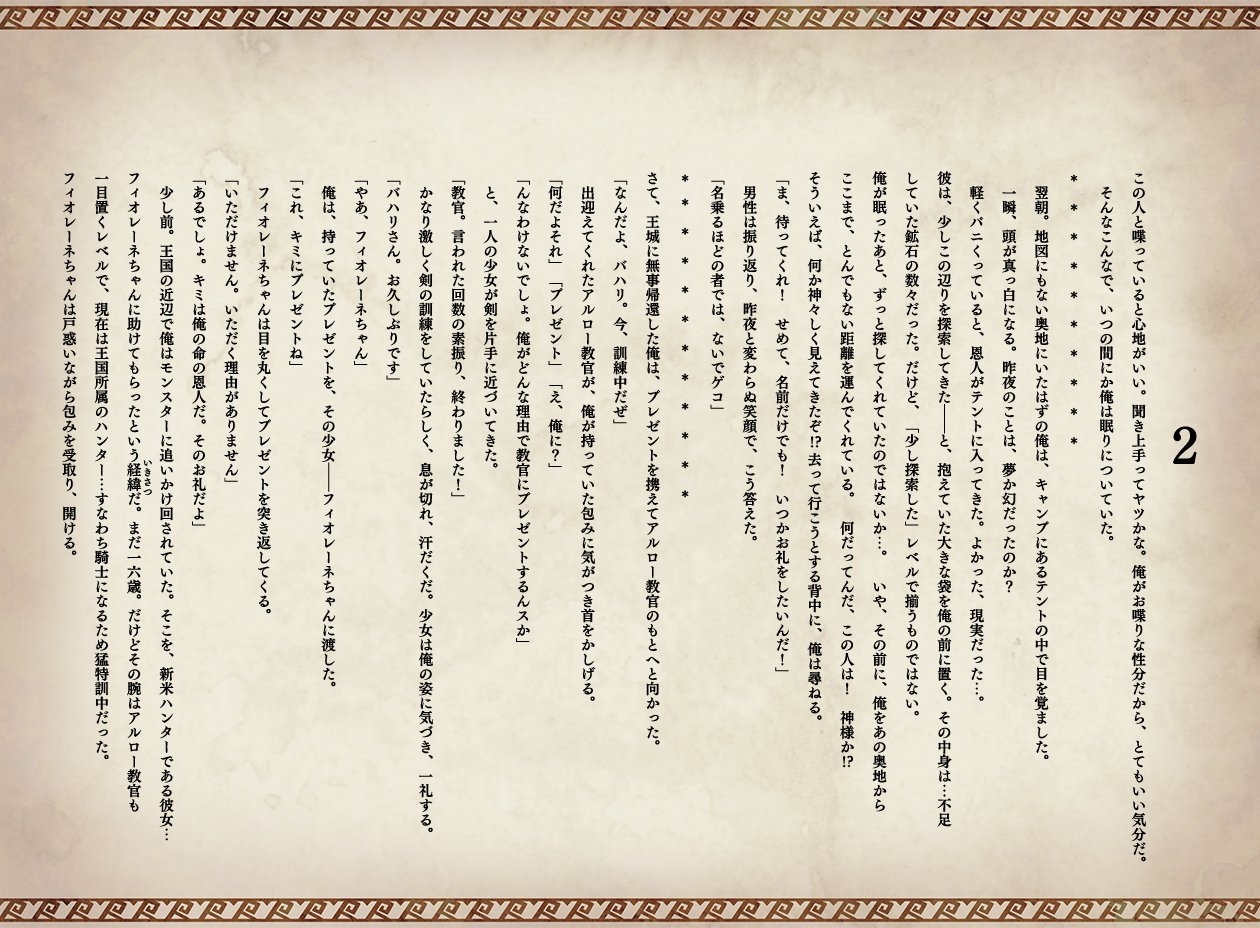 2
この人と喋っていると心地がいい。聞き上手ってヤツかな。俺がお喋りな性分だから、とてもいい気分だ。
そんなこんなで、いつの間にか俺は眠りについていた。
＊　＊　＊　＊　＊　＊　＊　＊　＊　＊
翌朝。地図にもない奥地にいたはずの俺は、キャンプにあるテントの中で目を覚ました。
一瞬、頭が真っ白になる。昨夜のことは、夢か幻だったのか？
軽くパニくっていると、恩人がテントに入ってきた。よかった、現実だった…。
彼は、少しこの辺りを探索してきた――と、抱えていた大きな袋を俺の前に置く。その中身は…不足
していた鉱石の数々だった。だけど、「少し探索した」レベルで揃うものではない。
俺が眠ったあと、ずっと探してくれていたのではないか…。　いや、その前に、俺をあの奥地から
ここまで、とんでもない距離を運んでくれている。　何だってんだ、この人は！　神様か!?
そういえば、何か神々しく見えてきたぞ!? 去って行こうとする背中に、俺は尋ねる。
「ま、待ってくれ！　せめて、名前だけでも！　いつかお礼をしたいんだ！」
男性は振り返り、昨夜と変わらぬ笑顔で、こう答えた。
「名乗るほどの者では、ないでゲコ」
＊　＊　＊　＊　＊　＊　＊　＊　＊　＊　＊　＊
さて、王城に無事帰還した俺は、プレゼントを携えてアルロー教官のもとへと向かった。
「なんだよ、バハリ。今、訓練中だぜ」
出迎えてくれたアルロー教官が、俺が持っていた包みに気がつき首をかしげる。
「何だよそれ」「プレゼント」「え、俺に？」
「んなわけないでしょ。俺がどんな理由で教官にプレゼントするんスか」
と、一人の少女が剣を片手に近づいてきた。
「教官。言われた回数の素振り、終わりました！」
かなり激しく剣の訓練をしていたらしく、息が切れ、汗だくだ。少女は俺の姿に気づき、一礼する。
「バハリさん。お久しぶりです」
「やあ、フィオレーネちゃん」
俺は、持っていたプレゼントを、その少女――フィオレーネちゃんに渡した。
「これ、キミにプレゼントね」
フィオレーネちゃんは目を丸くしてプレゼントを突き返してくる。
「いただけません。いただく理由がありません」
「あるでしょ。キミは俺の命の恩人だ。そのお礼だよ」
少し前。王国の近辺で俺はモンスターに追いかけ回されていた。そこを、新米ハンターである彼女…
フィオレーネちゃんに助けてもらったという経緯だ。まだ一六歳。だけどその腕はアルロー教官も
いきさつ
一目置くレベルで、現在は王国所属のハンター…すなわち騎士になるため猛特訓中だった。
フィオレーネちゃんは戸惑いながら包みを受取り、開ける。